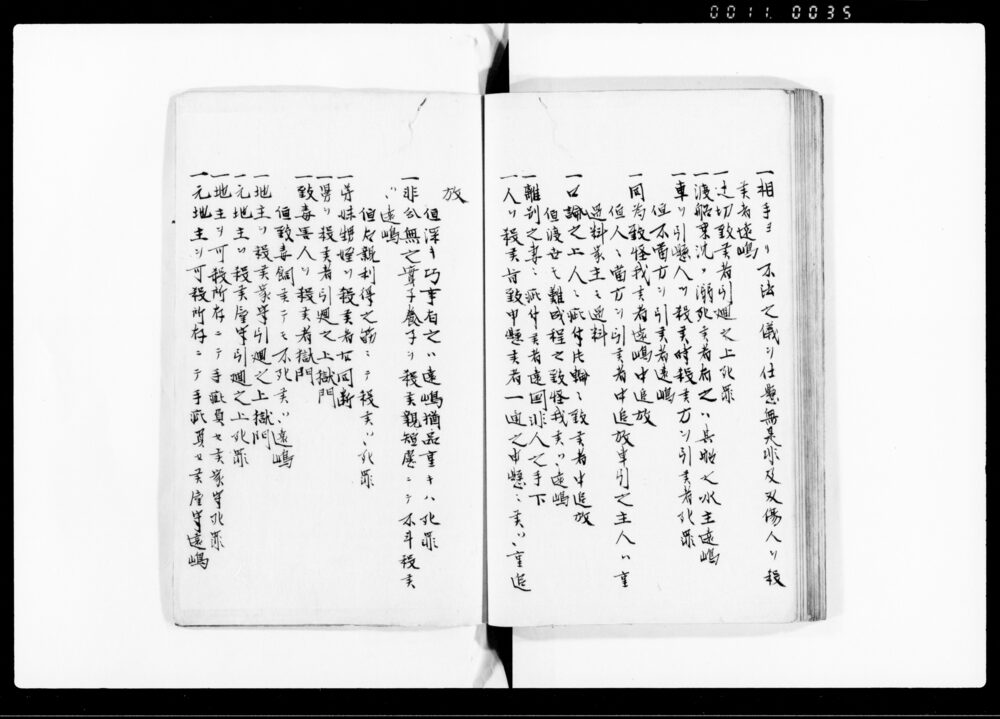 0011 0035
一相手ヨリ不法之儀ヲ仕懸無是非及刄傷人ヲ殺
候者遠嶋
一辻切致候者引廻之上死罪
一渡船乗沈メ溺死候者有之ハ其船之水主遠嶋
一車ヲ引懸人ヲ殺候時殺候方ヲ引候者死罪
但不當方ヲ引候者遠嶋
一同為致怪我候者遠嶋中追放
但人ニ當方ヲ引候者中追放車引之主人ハ重
過料家主ニ過料
一口論之上人ニ疵付片輪ニ致候者中追放
但渡世モ難成程之致怪我候ハ遠嶋
一離別之妻ニ疵付候者遠国非人之手下
一人ヲ殺候旨致申懸候者一通之申懸ニ候ハ重追
放
但深キ巧事有之ハ遠嶋猶品重キハ死罪
一非分無之實子養子ヲ殺候親短慮ニテ不斗殺候
ハ遠嶋
但右親利得之筋ニテ殺候ハ死罪
一弟妹甥姪ヲ殺候者右同断
一舅ヲ殺候者引廻之上獄門
一致毒害人ヲ殺候者獄門
但致毒飼候テモ不死候ハ遠嶋
一地主ヲ殺候家守引廻之上獄門
一元地主ヲ殺候家守引廻之上死罪
一地主ヲ可殺所存ニテ手疵負セ候家守死罪
一元地主ヲ可殺所存ニテ手疵負セ候家守遠嶋